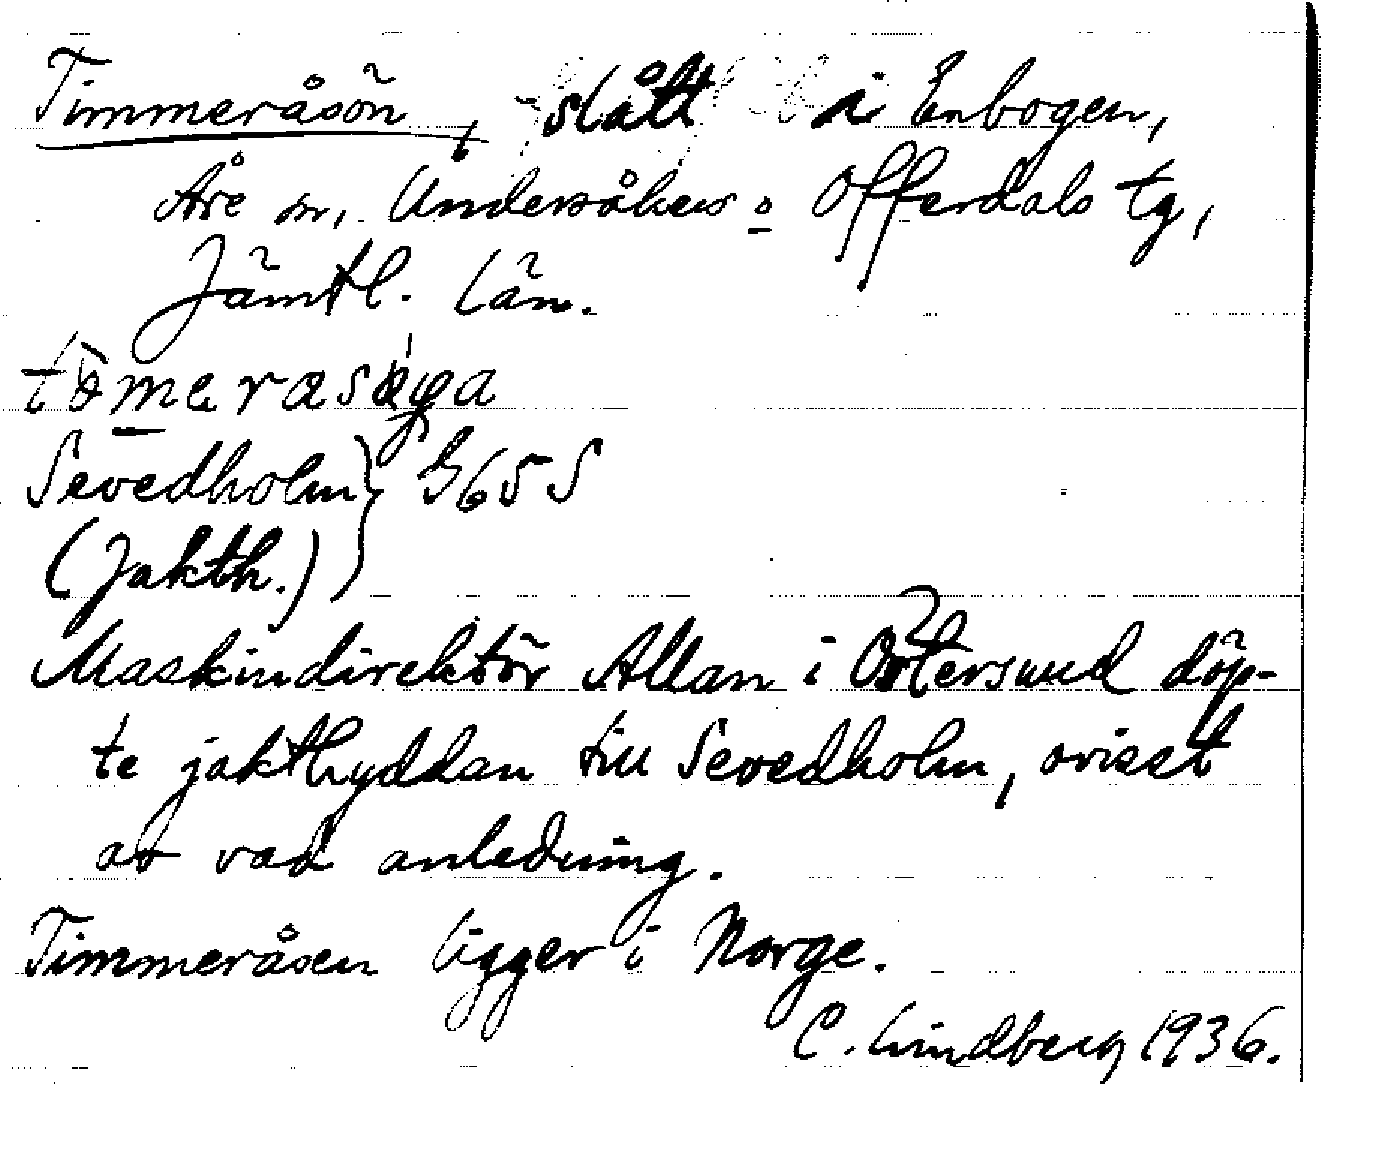 Timmeråsön, slått i Enbogen,
Åre sn, Undersåkers o Offerdals tg,
Jämtl. län.
Sevedholm } G65S
(Jakth.)
Maskindirektör Allan i Östersund döp-
te jakthyddan till Sevedholm, ovisst
av vad anledning.
Timmeråsen ligger i Norge.
C. Lindberg 1936.